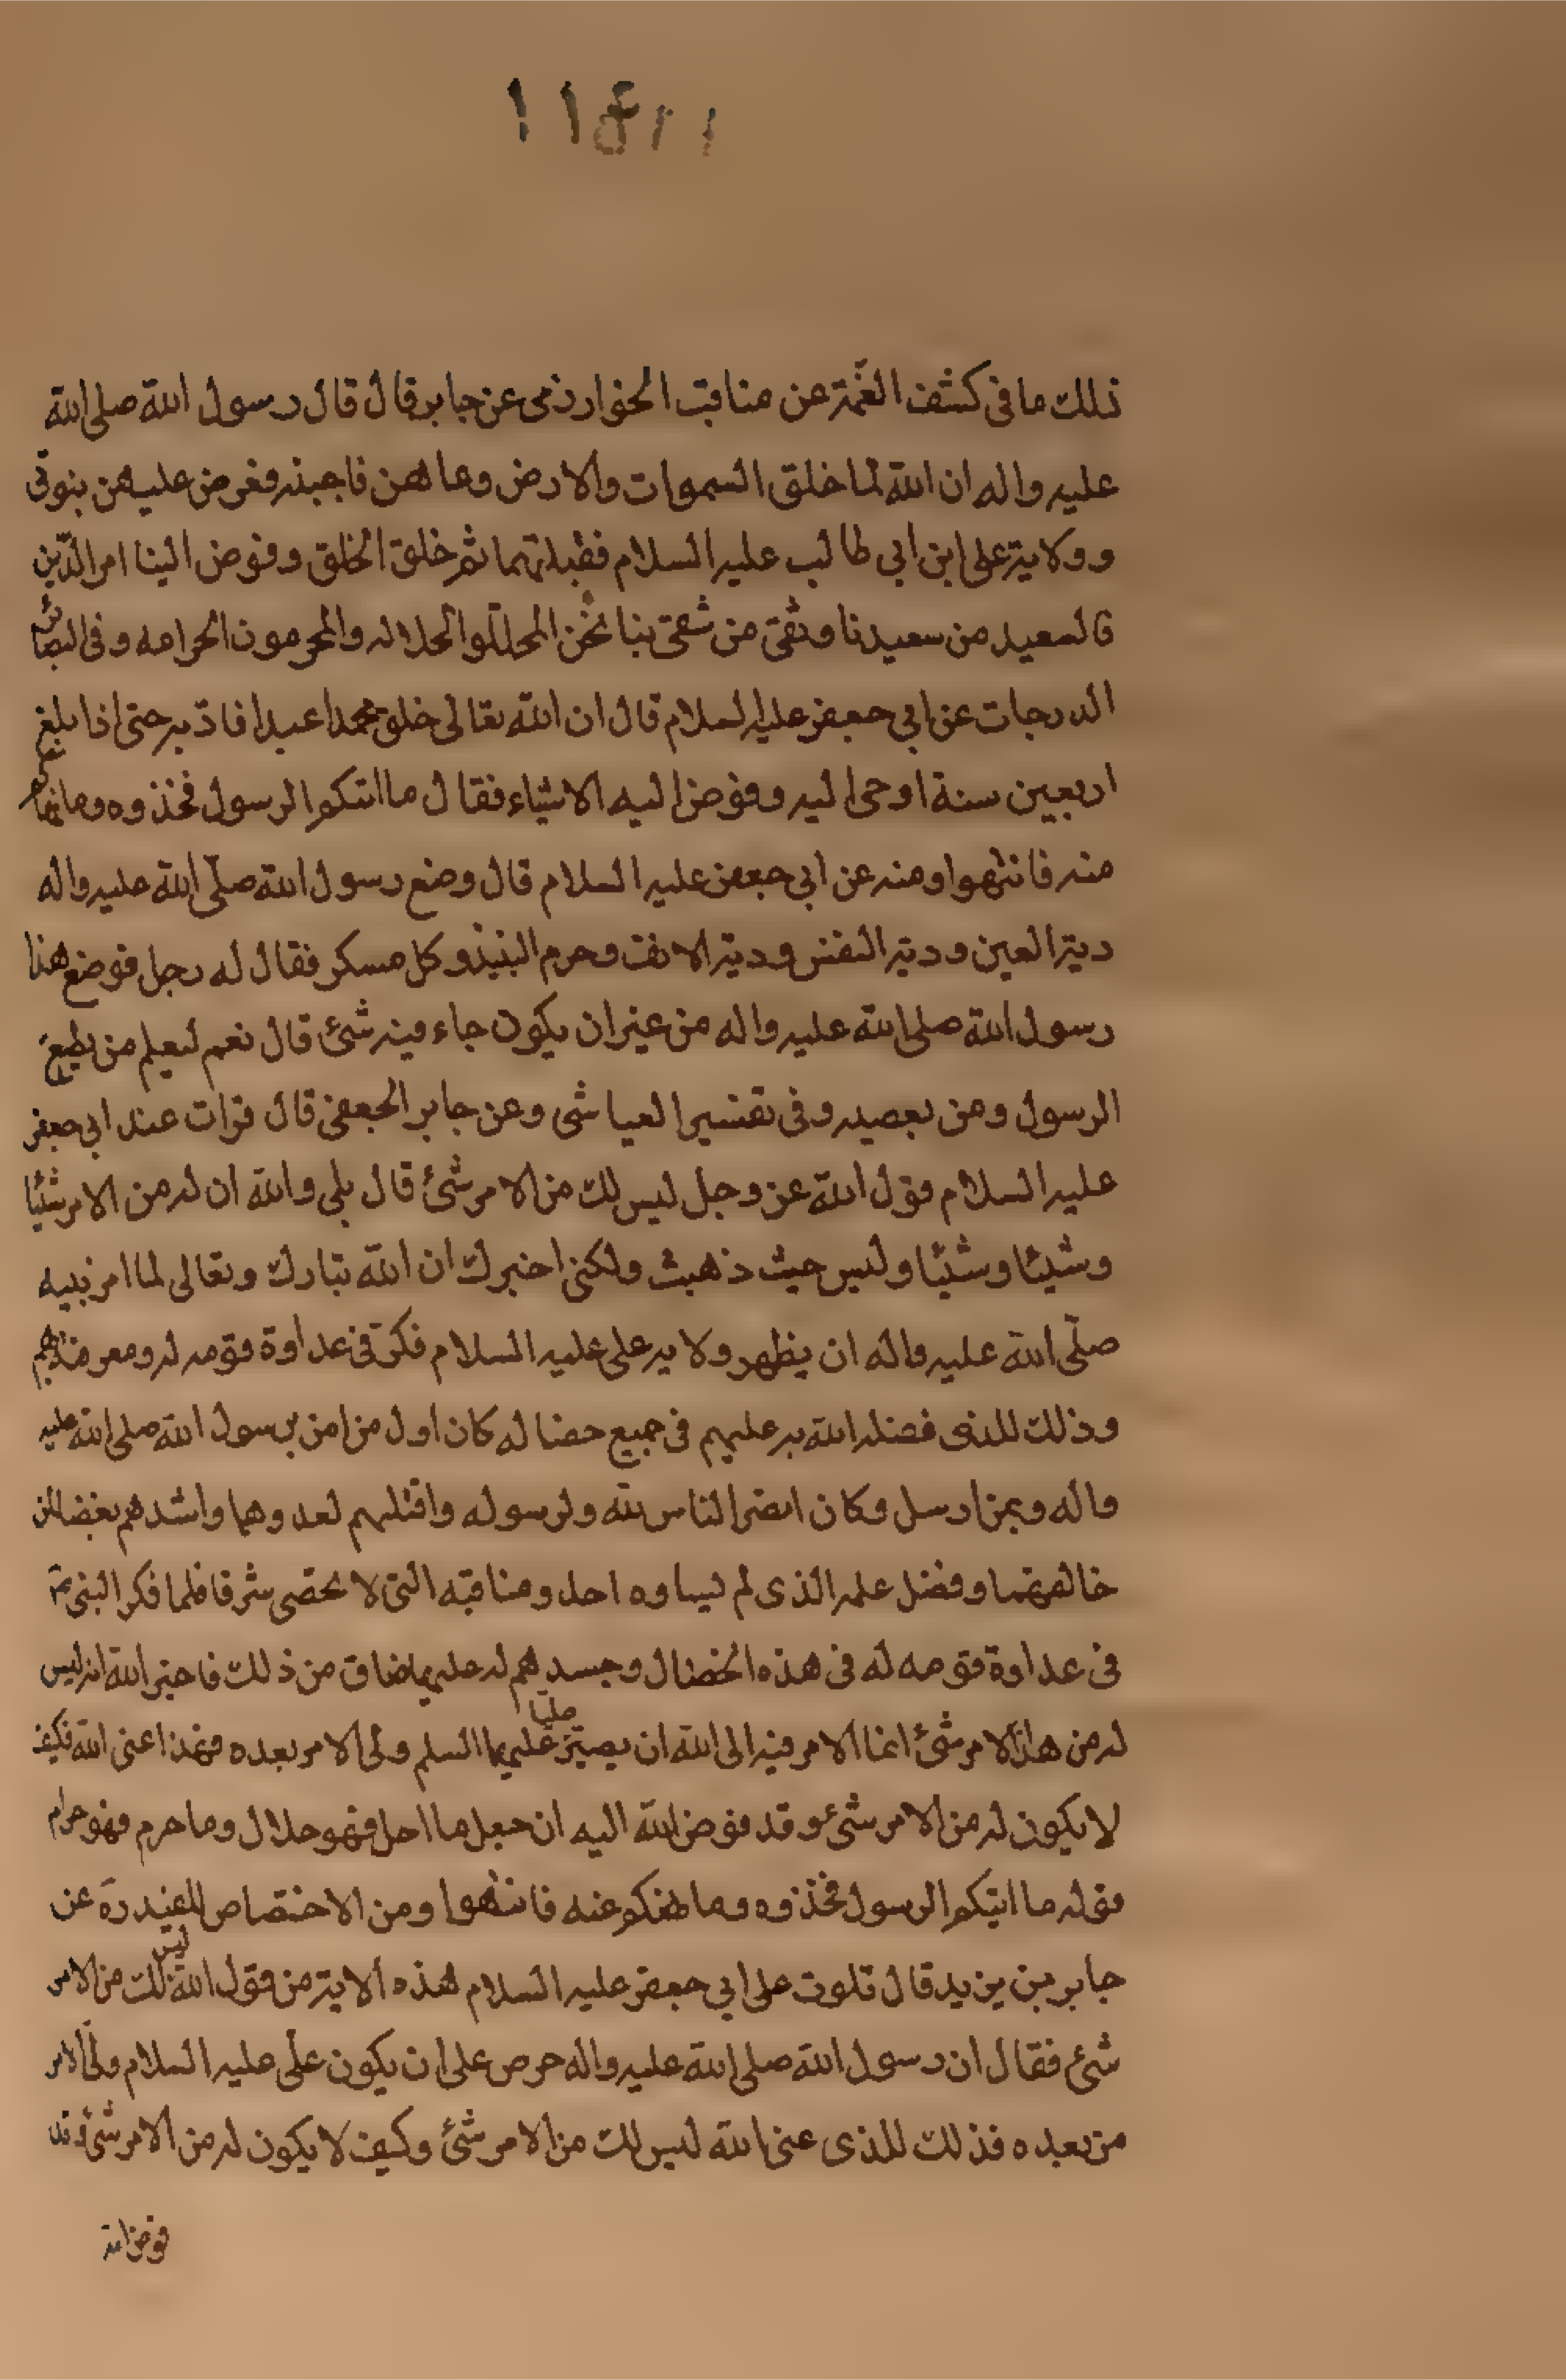 ذلك ما فى كشف الغمّة عن مناقب الخوارزمى عن جابر قال قال رسول الله صلى الله
عليه واله ان الله لما خلق السموات والارض وعاهن فاجبنه فعرض عليهن بنوتى
وولاية على ابن ابى طالب عليه السلام فقبلتهما ثم خلق الخلق وفوض الينا امر الدّين
فالسعيد من سعيدنا وشقى من شقى بنا نحن المحللّوا لحلاله والمحرمون لحرامه وفى البصائر
الدرجات عن ابى جعفر عليه السلام قال ان الله تعالى خلق محمدا عبدا فادّبه حتى اذا بلغ
اربعين سنة اوحى اليه وفوض اليه الاشياء فقال ما اتيكم الرسول فخذوه وما نهاكم
عنه فانتهوا ومنه عن ابى جعفر عليه السلام قال وضع رسول الله صلّى الله عليه واله
دية العين ودية النفس ودية الانف وحرم النبيذ وكل مسكر فقال له رجل فوضع هذا
رسول الله صلى الله عليه واله من غير ان يكون جاء فيه شئ قال نعم ليعلم من يطيع
الرسول ومن يعصيه وفى تفسير العياشى وعن جابر الجعفى قال قرات عند ابى جعفر
عليه السلام قول الله عز وجل ليس لك من الامر شئ قال بلى والله ان له من الامر شيئا
وشيئا وشيئا وليس حيث ذهبت ولكنى اخبرك ان الله تبارك وتعالى لما امر نبيه
صلّى الله عليه واله ان يظهر ولايه على عليه السلام فكر فى عداوة قومه له ومعرفته بهم
وذلك للذى فضله الله به عليهم فى جميع خصاله كان اول من امن برسول الله صلى الله عليه
واله وبمن ارسل وكان انصر الناس لله ولرسوله واقتلهم لعدوهما واشدهم بغضا لمن
خالفهما وفضل علمه الذى لم يساوه احد ومناقبه التى لا تحصى شرفا فلما فكر النبى
فى عداوة قومه له فى هذه الخصال وحسدهم له عليها ضاق من ذلك فاخبر الله انه ليس
له من هذا الامر شئ انما الامر فيه الى الله ان يصيّر عليّا عليهما السلم ولى الامر بعده فهذا عنى الله فكيف
لا يكون له من الامر شئ وقد فوض الله اليه ان جعل ما احل فهو حلال وما حرم فهو حرام
قوله ما اتيكم الرسول فخذوه وما نهيكم عنه فانتهوا ومن الاختصاص للمفيد ره عن
جابر بن يزيد قال تلوت على ابى جعفر عليه السلام هذه الاية من قول الله ليس لك من الامر
شئ فقال ان رسول الله صلى الله عليه واله حرص على ان يكون على عليه السلام ولىّ الامر
من بعده فذلك للذى عنى الله ليس لك من الامر شئ وكيف لا يكون له من الامر شئ وقد
فوض الله